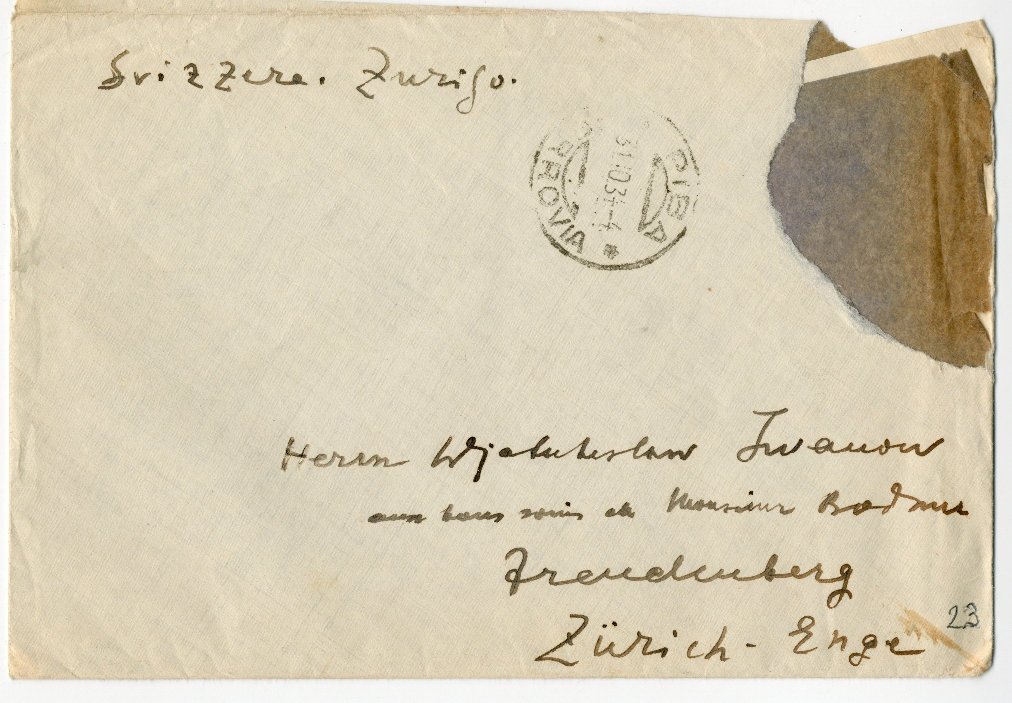 Svizzera. Zurigo.
PISA
FERROVIA
31.10.34-4
Herrn Wjatscheslaw Iwanow
aux bons soins de Monsieur Bodmer
Freudenberg
Zürich - Enge
23